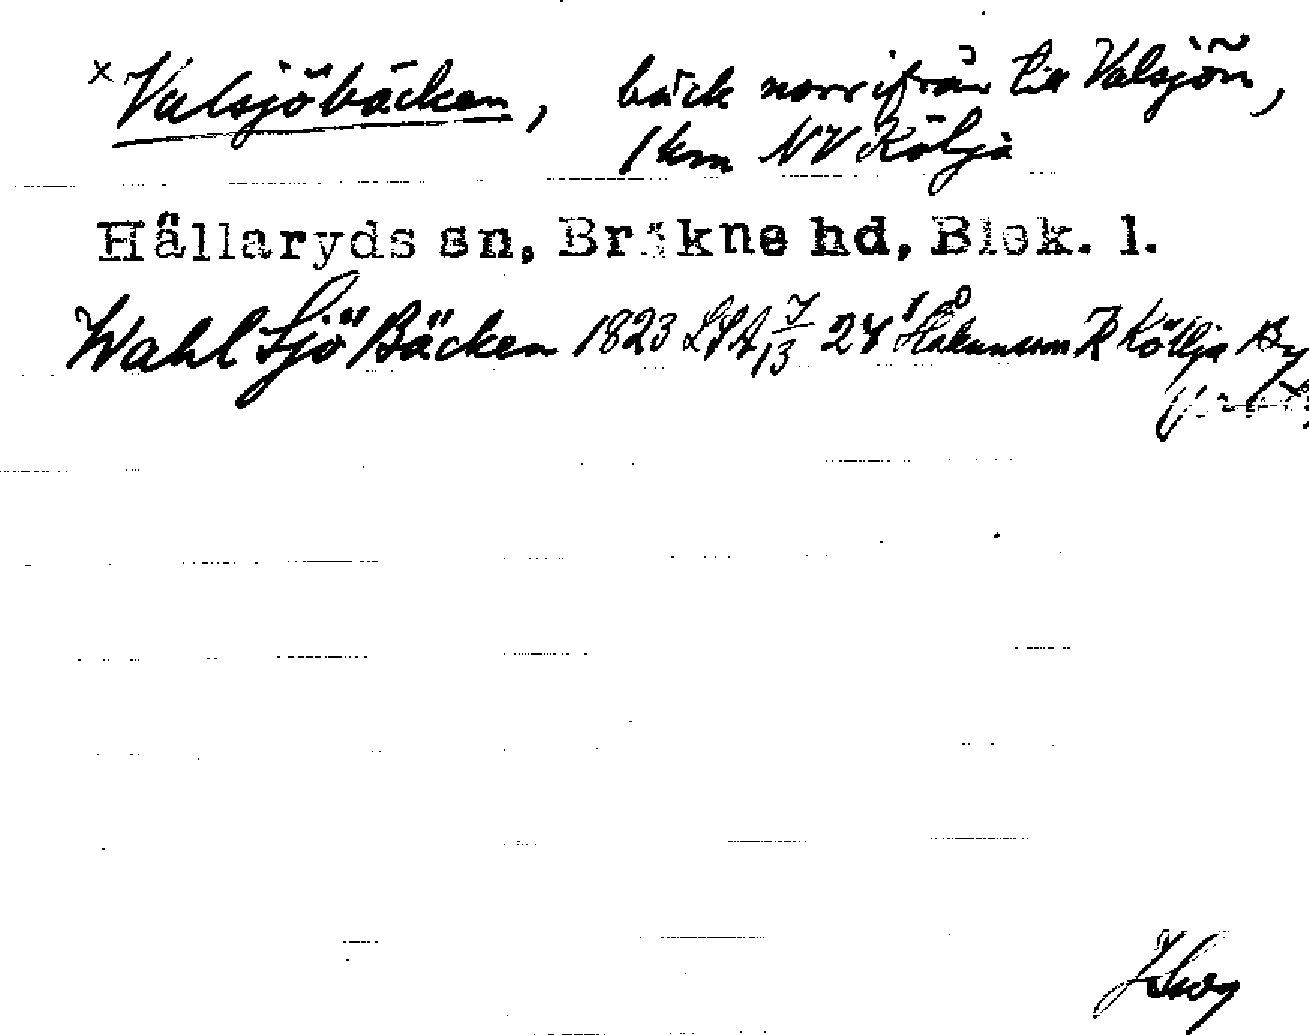 × Valsjöbäcken, bäck norrifrån till Valsjön,
1 km NV Kölja
Hällaryds sn, Bräkne hd, Blek. l.
Wahl Sjö Bäcken 1823 LSA 7/13 24 Köllja By